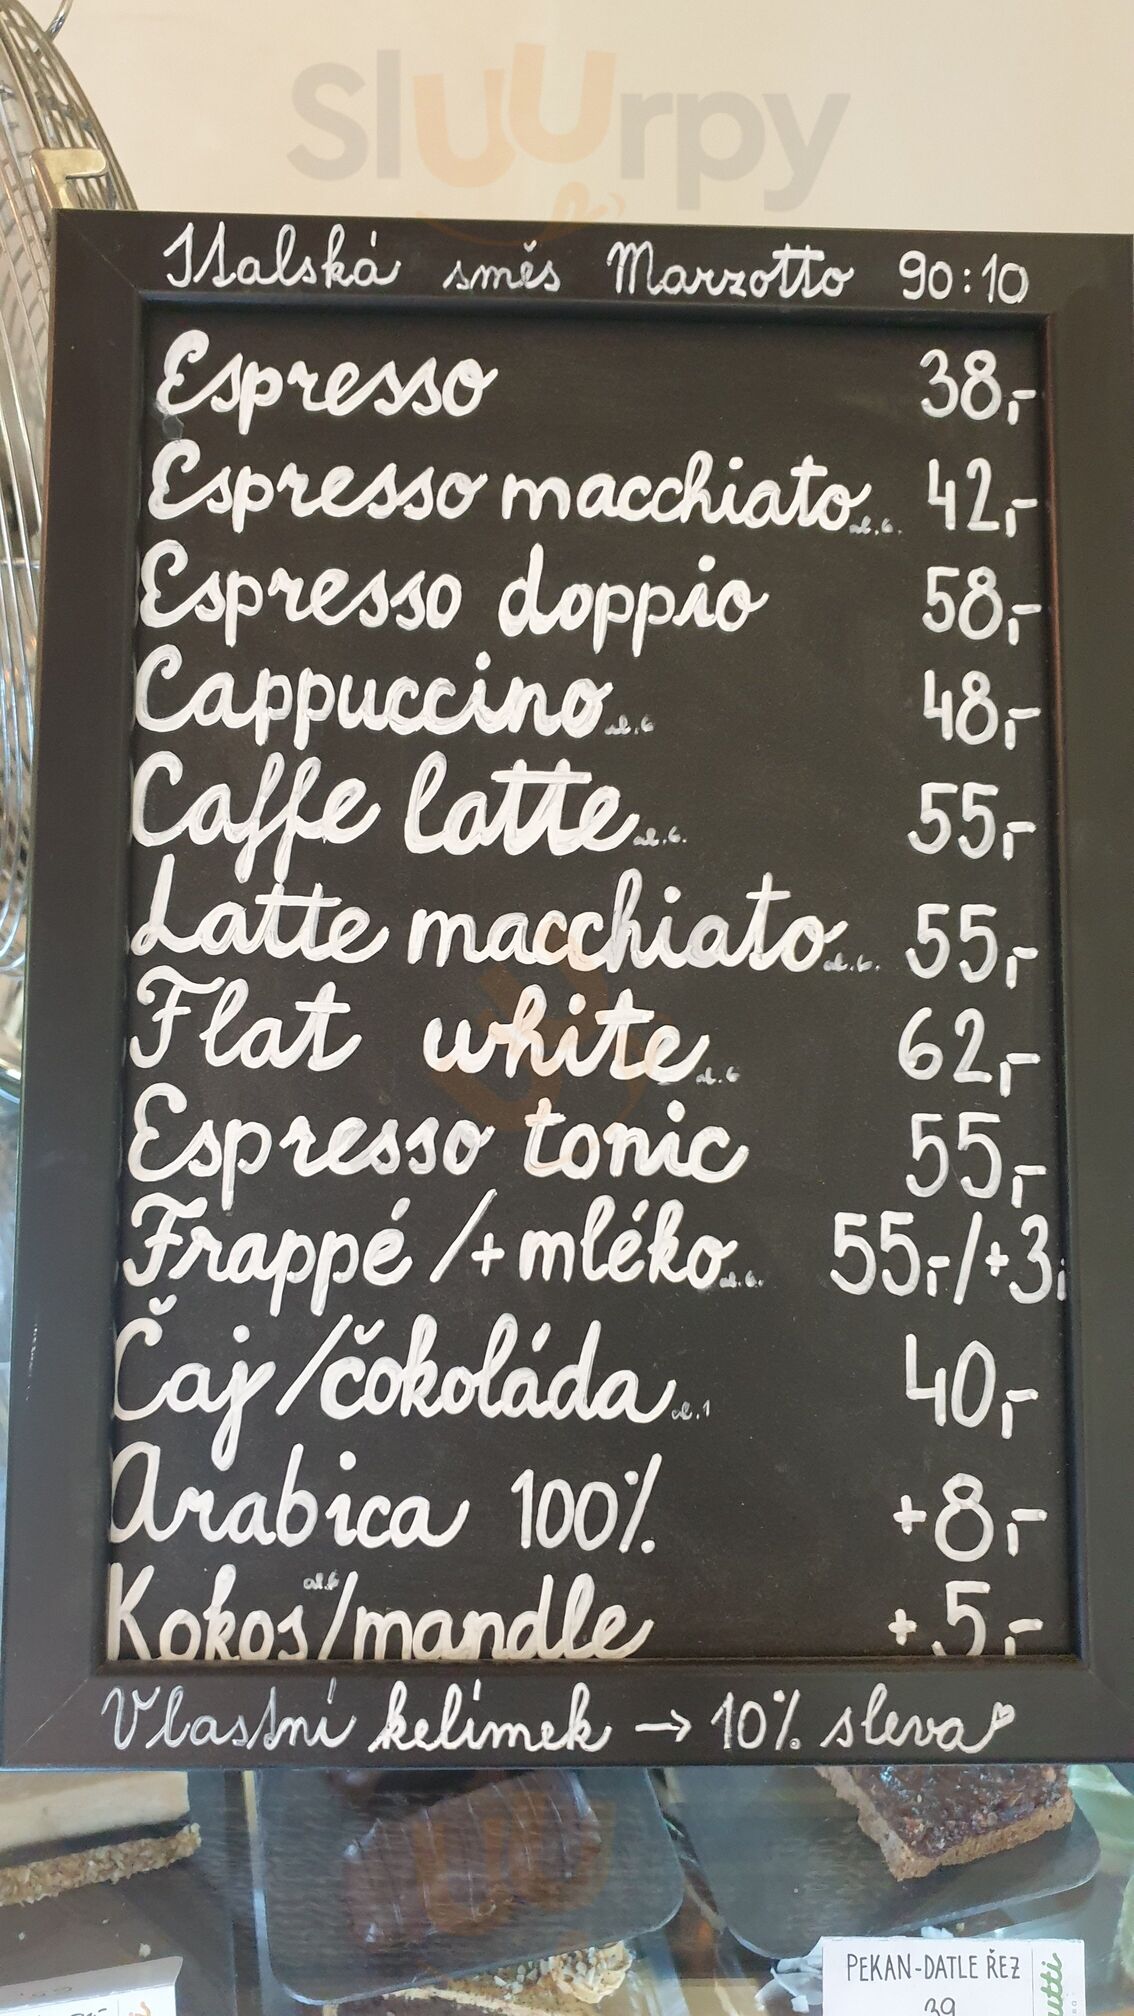 Sluurpy
Italská směs Marzotto 90:10
Espresso 38,-
Espresso macchiato al.6. 42,-
Espresso doppio 58,-
Cappuccino al.6 48,-
Caffe latte al.6. 55,-
Latte macchiato al.6. 55,-
Flat white al.6 62,-
Espresso tonic 55,-
Frappé /+ mléko al.6. 55,-/+3,
Čaj/čokoláda al.1 40,-
Arabica 100% +8,-
Kokos al.6/mandle +5,-
Vlastní kelímek → 10% sleva
PEKAN-DATLE ŘEZ
39